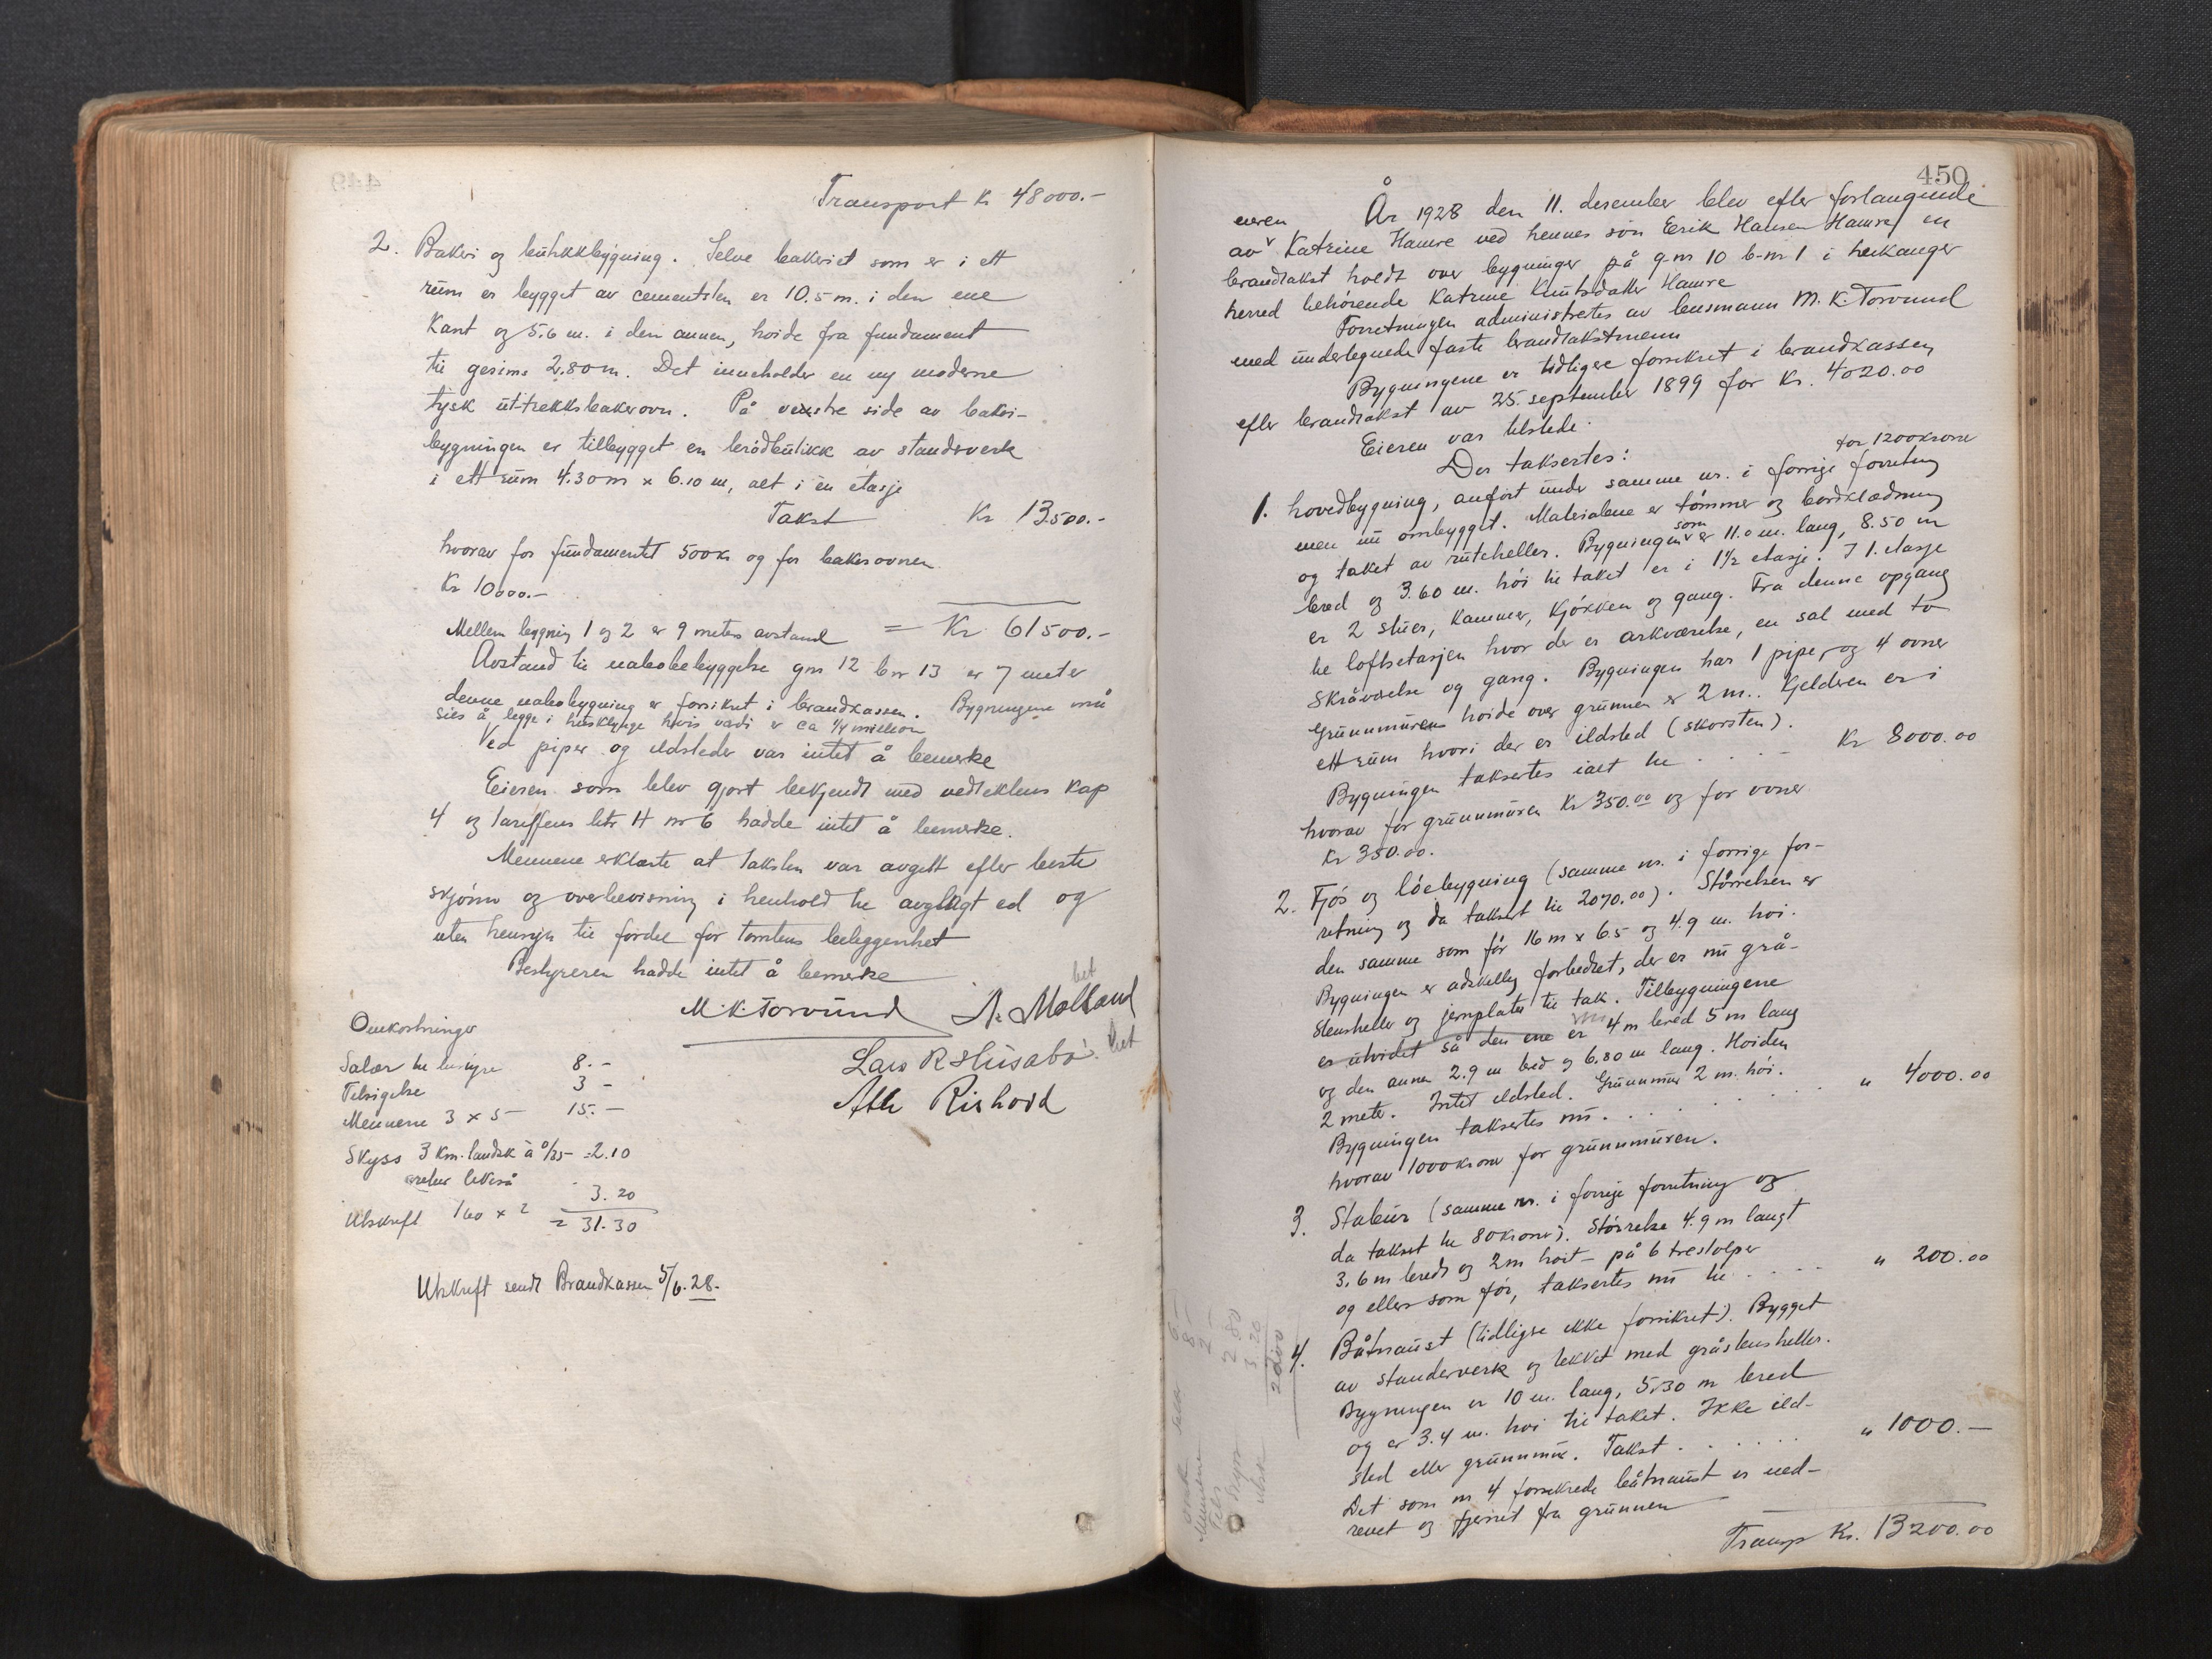 Transport Kr 48000.-
2. Bakeri og butikkbygning. Selve bakeriet som er i ett
rum er bygget av cementsten er 10.5 m. i den ene
kant og 5.6 m. i den annen, høide fra fundament
til gesims 2.80 m. Det inneholder en ny moderne
tysk ut-trekksbakerovn. På venstre side av bakeri-
bygningen er tilbygget en brødbutikk av standsverk
i ett rum 4.30 m x 6.10 m, alt i én etasje
Takst Kr 13500.-
hvorav for fundamentet 500 kr og for bakerovnen
Kr 10000.-
Mellem bygning 1 og 2 er 9 meters avstand = Kr 61500.-
Avstand til nabobebyggelse gnr 12 bnr 13 er 7 meter
denne nabobygning er forsikret i brandkassen. Bygningene må
sies å ligge i husklynge hvis verdi er ca 1/4 million
Ved piper og ildsteder var intet å bemerke
Eieren som blev gjort bekjendt med vedtektens kap
4 og tariffens litr H nr 6 hadde intet å bemerke.
Mennene erklærte at taksten var avgitt efter beste
skjønn og overbevisning i henhold til avglagt ed og
uten hensyn til fordel for tomtens beleggenhet
Bestyreren hadde intet å bemerke
M. K. Torvund A. Mølland
Lars R Husabø
Atle Rishovd
Omkostninger
Salær til bestyre 8.-
Tilsigelse 3 -
Mennene 3 x 5 - 15.-
Skyss 3 km. landsk à 0/35 = 2.10
retur likeså
Utskrift 160 x 2 3.20
= 31.30
Utskrift sendt Brandkassen 5/6.28.
450
År 1928 den 11. desember blev efter forlangende
eieren
av Katrine Hamre ved hennes søn Eerik Hansen Hamre en
brandtakst holdt over bygninger på g-nr 10 b-nr 1 i Leikanger
herred tilhørende Katrine Knutsdatter Hamre
Forretningen administrertes av lensmann M. K. Torvund
med underlegnede faste brandtakstmenn
Bygningene er tidligere forsikret i brandkassen
efter brandtakst av 25. september 1899 for Kr. 4020.00
Eieren var tilstede.
Der taksertes:
for 1200 kroner
1. Hovedbygning, anført under samme nr. i forrige forretning
men nu ombygget. Materialene er tømmer og bordklædning
og taket av ruteheller. Bygningen som er 11.0 m. lang, 8.50 m
bred og 3.60 m. høi til taket er i 1½ etasje. I 1. etasje
er 2 stuer, kammer, kjøkken og gang. Fra denne opgang
til loftsetasjen hvor der er arkværelse, en sal med to
skråværelse og gang. Bygningen har 1 pipe, og 4 ovner
Grunnmurens høide over grunnen er 2 m.. Kjelderen er i
ett rum hvori der er ildsted (skorsten).
Bygningen taksertes ialt til . . Kr 8000.00
hvorav for grunnmuren Kr 350.00 og for ovner
Kr 350.00.
2. Fjøs og løebygning (samme nr. i forrige for-
retning og da taksert til 2070.00). Størrelsen er
den samme som før 16 m x 6.5 og 4.9 m. høi.
Bygningen er adskillig forbedret, der er nu grå-
stensheller og jernplater til tak. Tilbygningene
er utvidet så den ene er 4 m bred 5 m lang
og den annen 2.9 m bred og 6.80 m lang. Høiden
2 meter. Intet ildsted. Grunnmur 2 m. høi.
Bygningen taksertes nu . . . . . . " 4000.00
hvorav 1000 kroner for grunnmuren.
3. Stabur (samme nr. i forrige forretning og
da takset til 80 kroner). Størrelse 4.9 m langt
3.6 m bredt og 2 m høit - på 6 trestolper
og ellers som før, taksertes nu til . . . . " 200.00
4. Båtnaust (tidligere ikke forsikret). Bygget
av standerverk og tekket med gråstensheller.
Bygningen er 10 m. lang, 5.30 m bred
og er 3.4 m. høi til taket. Ikke ild-
sted eller grunnmur. Takst . . . . . . " 1000.-
Det som nr 4 forsikrede båtnaust er ned-
revet og fjernet fra grunnen
Transp Kr. 13200.00